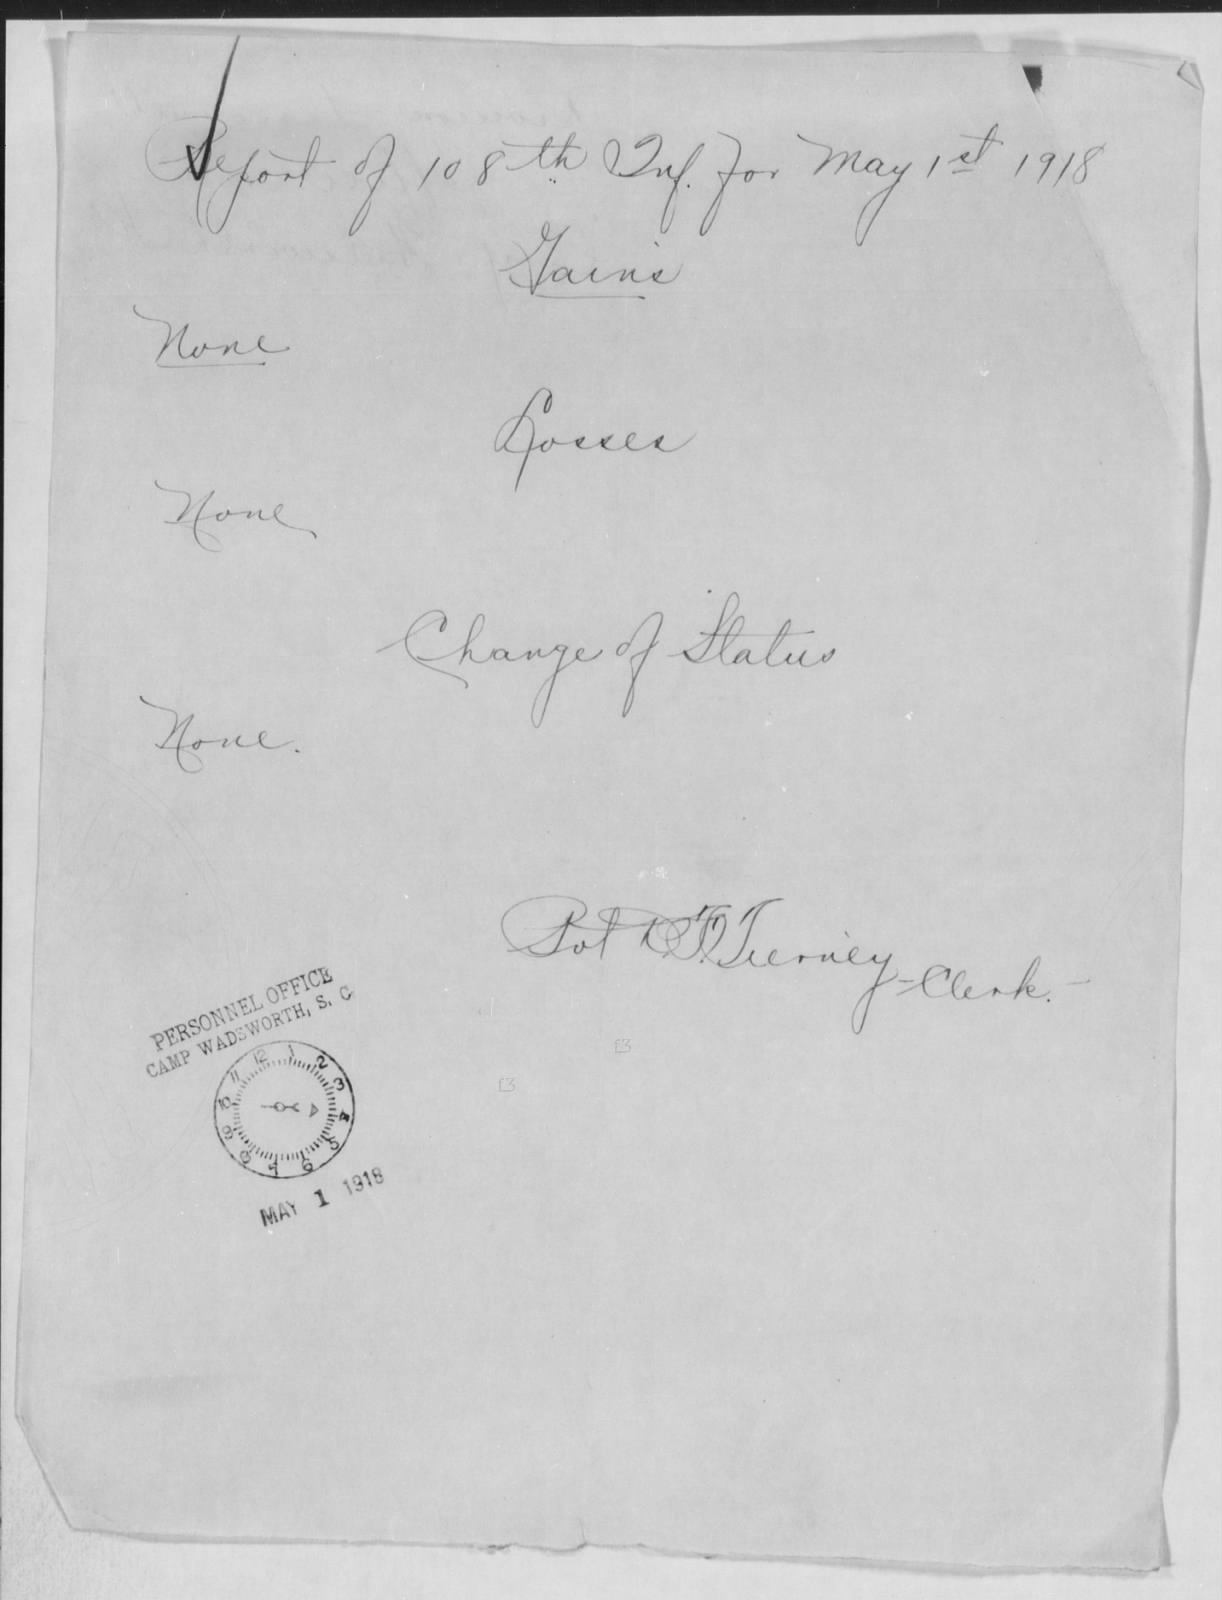 Report of 108th Inf. for May 1st 1918
Gains
None
Losses
None
Change of Status
None.
Pvt D F Tierney - Clerk. -
PERSONNEL OFFICE
CAMP WADSWORTH, S. C.
12 1 2 3 4 5 6 7 8 9 10 11
MAY 1 1918